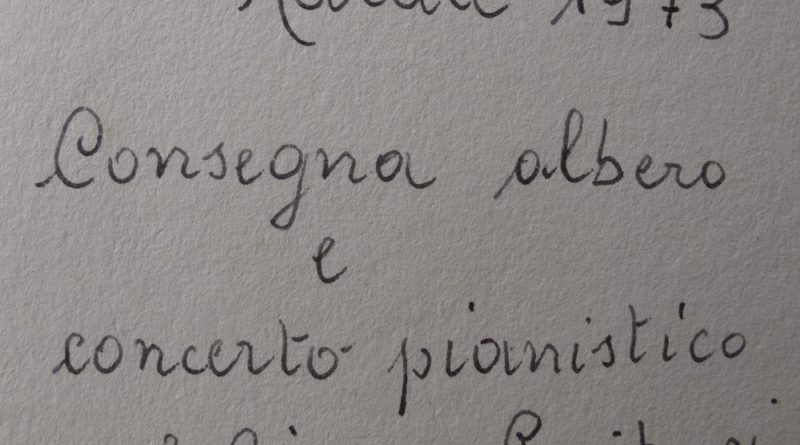 Natale 1973
Consegna albero
e
concerto pianistico